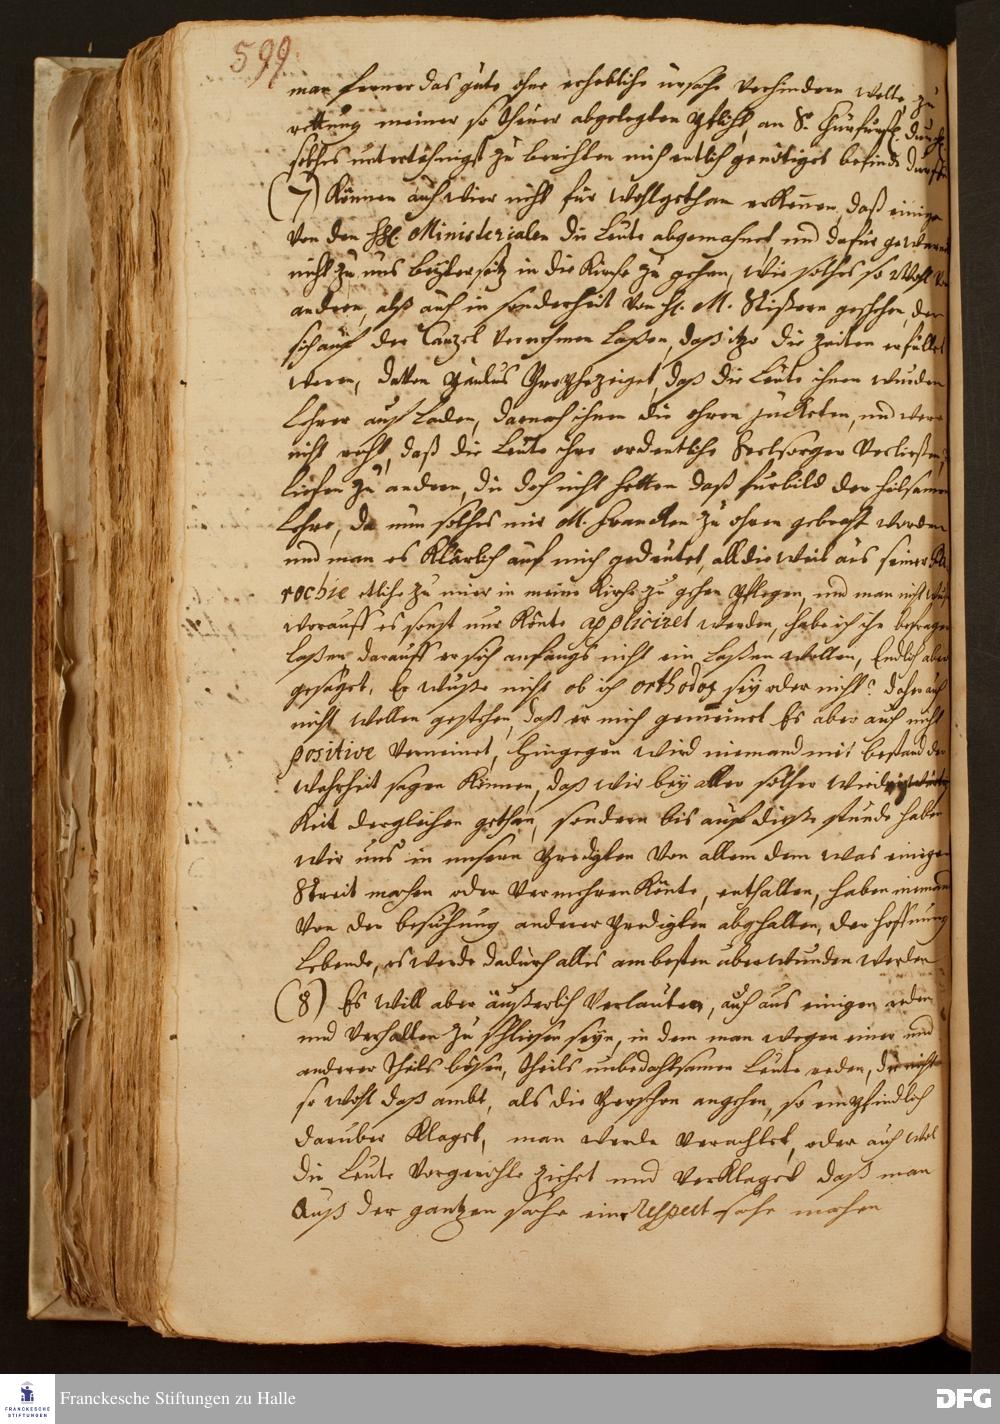 599.
man ferner das gute ohne erhebliche ursache verhindern wolte, zu
rettung meiner so theuer abgelegten Pflicht, an S. Churfürstl. Durchl.
solches unterthänigst zu berichten mich entlich genötiget befinde durffte
(7) Können auch wier nicht für wohlgethan erkennen, daß einige
von den HH. Ministerialen die Leute abgemahnet, und dafür gewarnet
nicht zu uns beyderseitz in die Kirche zu gehen, wie solches so wohl von
andern, alß auch in sonderheit von H. M. Stißern geschehen, der
sich auf der Cantzel vernehmen laßen, daß itzo die zeiten erfüllet
weren, davon Paulus Prophezeiget, daß die Leute ihnen wurden
Lehrer auf laden, darnach ihnen die ohren jückten, und were
nicht recht, daß die Leute ihre ordentliche Seelsorger verließen,
liefen zu andern, die doch nicht hetten daß furbild der heilsamen
Lehre, da nun solches mir M. Francken zu ohren gebracht worden
und man es klärlich auf mich gedeutet, alldieweil aus seiner Pa-
rochie etliche zu mier in meine Kirche zu gehen pflegen, und man nicht wuste
worauff es sonst nur könte appliciret werden, habe ich ihn befragen
laßen darauff er sich anfangs nicht ein laßen wollen, Endlich aber
gesaget, Er wuste nicht ob ich orthodox sey oder nicht? daher auch
nicht wollen gestehen, daß er mich gemeinet Es aber auch nicht
positive verneinet, Hingegen wird niemand mit bestand der
Wahrheit sagen können, daß wir bey aller solcher
keit dergleichen gethan, sondern bis auf dieße stunde haben
wir uns in unsern Predigten von allem dem was einigen
Streit machen oder vermehren könte, enthalten, haben niemand
von der besuchung anderer Predigten abgehalten, der hoffnung
lebende, es werde dadurch alles am besten überwunden werden
(8) Es will aber äußerlich verlauten, auch aus einigen reden
und verhalten zu schließen seyn, in dem man wegen einer und
anderer theils bösen, theils unbedachtsamen Leute reden, die nicht
so wohl daß ambt, als die Perschon angehen, so empfindlich
darüber klaget, man werde verachtet, oder auch wol
die Leute vorgerichte ziehet und verklaget daß man
auß der gantzen sache eine respect sache machen
Franckesche Stiftungen zu Halle
FRANCKESCHE
STIFTUNGEN
DFG